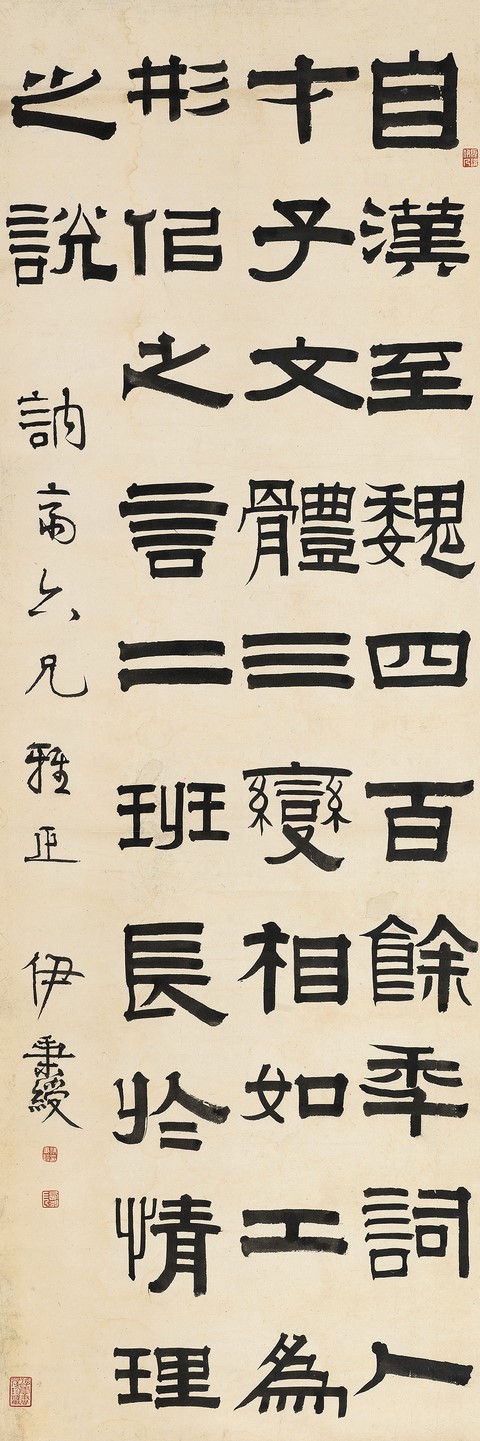 自漢至魏四百餘年詞人
才子文體三變相如工為
形佀之言二班長於情理
之說
訥齋六兄雅正
伊秉綬